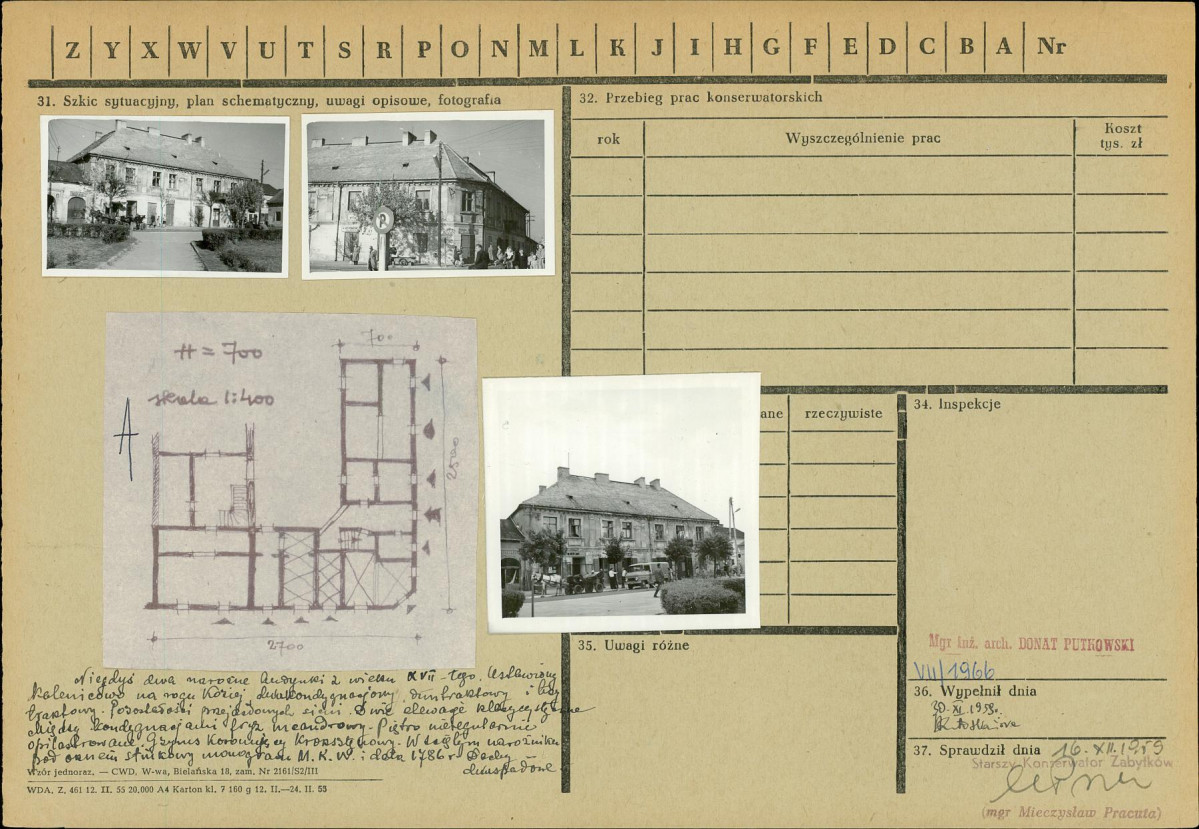 Z Y X W V U T S R P O N M L K J I H G F E D C B A Nr
31. Szkic sytuacyjny, plan schematyczny, uwagi opisowe, fotografia
32. Przebieg prac konserwatorskich
rok
Wyszczególnienie prac
Koszt
tys. zł
H = 700
skala 1:400
A
700
2700
ane
rzeczywiste
34. Inspekcje
35. Uwagi różne
Mgr inż. arch. DONAT PUTKOWSKI
VII/1966
36. Wypełnił dnia
37. Sprawdził dnia 16. XII. 1959
Starszy Konserwator Zabytków
(mgr Mieczysław Pracuta)
Niegdyś dwa narożne budynki z wieku XVII-tego. Ustawiony
kalenicowo na rogu Koziej dwukondygnacjowy dwutraktowy i
traktowy. Pozostałości przejezdnych sieni. Dwie elewacje klasycystyczne
Między kondygnacjami fryz meandrowy. Piętro nieregularnie
opilastrowane. Gzyms koronujący kroksztynowy. W ściętym narożniku
pod oknem stiukowy monogram M.K.W. i data 1786 r. Dachy
dwuspadowe
Wzór jednoraz. — CWD, W-wa, Bielańska 18, zam. Nr 2161/S2/III
WDA. Z. 461 12. II. 55 20.000 A4 Karton kl. 7 160 g 12. II.—24. II. 55